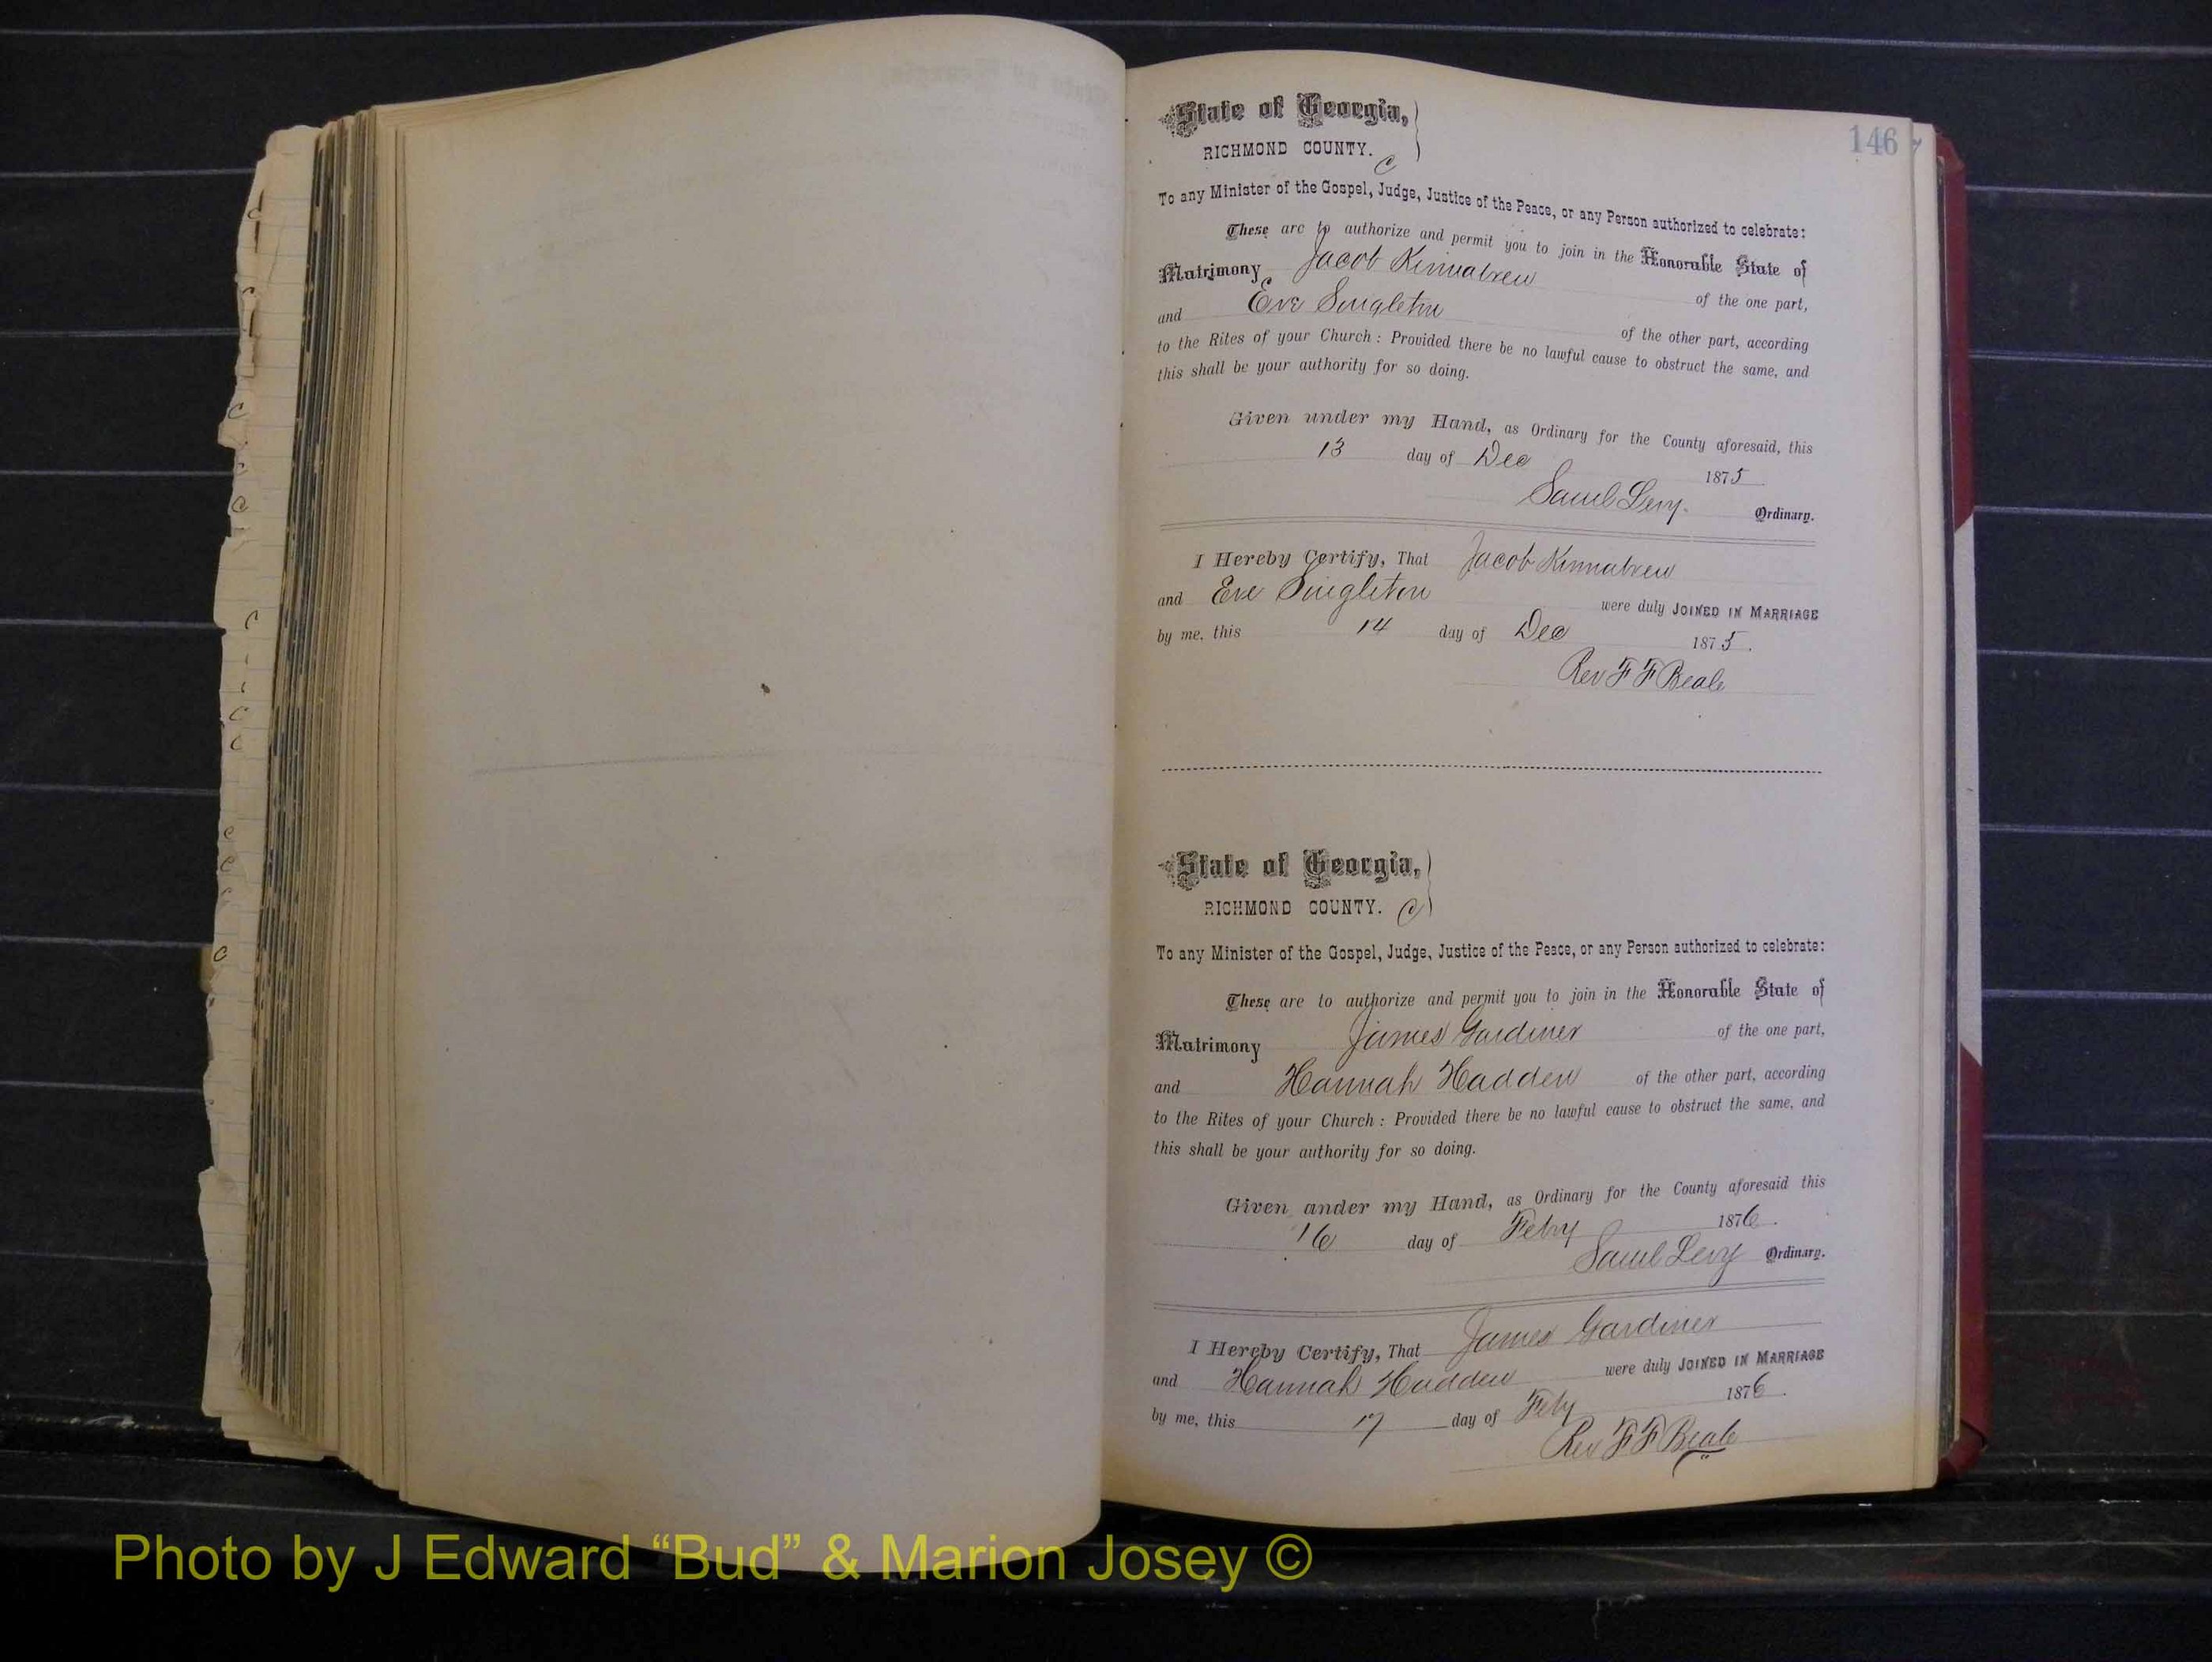 146
State of Georgia,
RICHMOND COUNTY. C
To any Minister of the Gospel, Judge, Justice of the Peace, or any Person authorized to celebrate:
These are to authorize and permit you to join in the Honorable State of
Matrimony Jacob Kinnabrew of the one part,
and Eve Singleton of the other part, according
to the Rites of your Church : Provided there be no lawful cause to obstruct the same, and
this shall be your authority for so doing.
Given under my Hand, as Ordinary for the County aforesaid, this
13 day of Dec 1875
Saml Levy. Ordinary.
I Hereby Certify, That Jacob Kinnabrew
and Eve Singleton were duly JOINED IN MARRIAGE
by me, this 14 day of Dec 1875.
Rev F F Beale
State of Georgia,
RICHMOND COUNTY. C
To any Minister of the Gospel, Judge, Justice of the Peace, or any Person authorized to celebrate:
These are to authorize and permit you to join in the Honorable State of
Matrimony James Gardiner of the one part,
and Hannah Hadden of the other part, according
to the Rites of your Church : Provided there be no lawful cause to obstruct the same, and
this shall be your authority for so doing.
Given under my Hand, as Ordinary for the County aforesaid this
16 day of Feby 1876.
Saml Levy Ordinary.
I Hereby Certify, That James Gardiner
and Hannah Hadden were duly JOINED IN MARRIAGE
by me, this 17 day of Feby 1876.
Rev F F Beale
Photo by J Edward “Bud” & Marion Josey ©